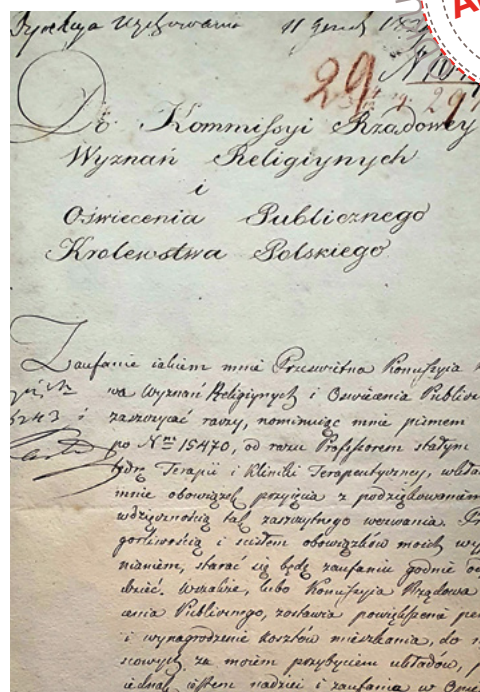 11 Grud. 182
29
Do Kommissyi Rządowey
Wyznań Religiynych
i
Oświecenia Publicznego
Krolewstwa Polskiego
Zaufanie iakiem mnie Prześwietna Kommissyia
wa Wyznań Religiynych i Oswiecenia Publicz
zaszczycać raczy, nominuiąc mnie pismem
po Nrm 15470, od razu Professorem stałym
Terapii i Kliniki Terapeutyczney, wkłada
mnie obowiązek przyięcia z podziękowaniem
wdzięcznością tak zaszczytnego wezwania.
gorliwością i scisłem obowiązków moich wy
nianiem, starać się będę zaufaniu godnie od
wszakże, lubo Kommissyia Rządowa
cenia Publicznego, zostawia powiększenie pe
i wynagrodzenie kosztów mieszkania, do
scowych za moiem przybyciem układów,
iednak iestem nadziei i zaufania w